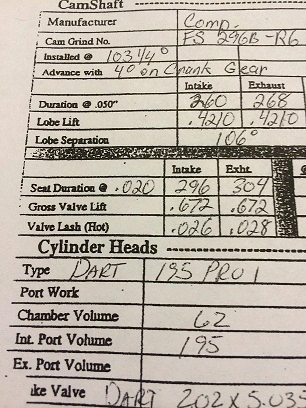 CamShaft
Manufacturer Comp.
Cam Grind No. FS 296B-R6
Installed @ 103 1/4°
Advance with 4° on Crank Gear
Intake Exhaust
Duration @ .050" 260 268
Lobe Lift .4210 .4210
Lobe Separation 106°
Intake Exht.
Seat Duration @ .020 296 304
Gross Valve Lift .672 .672
Valve Lash (Hot) .026 .028
Cylinder Heads
Type DART 195 PRO 1
Port Work
Chamber Volume 62
Int. Port Volume 195
Ex. Port Volume
ake Valve DART 202 X 5.035